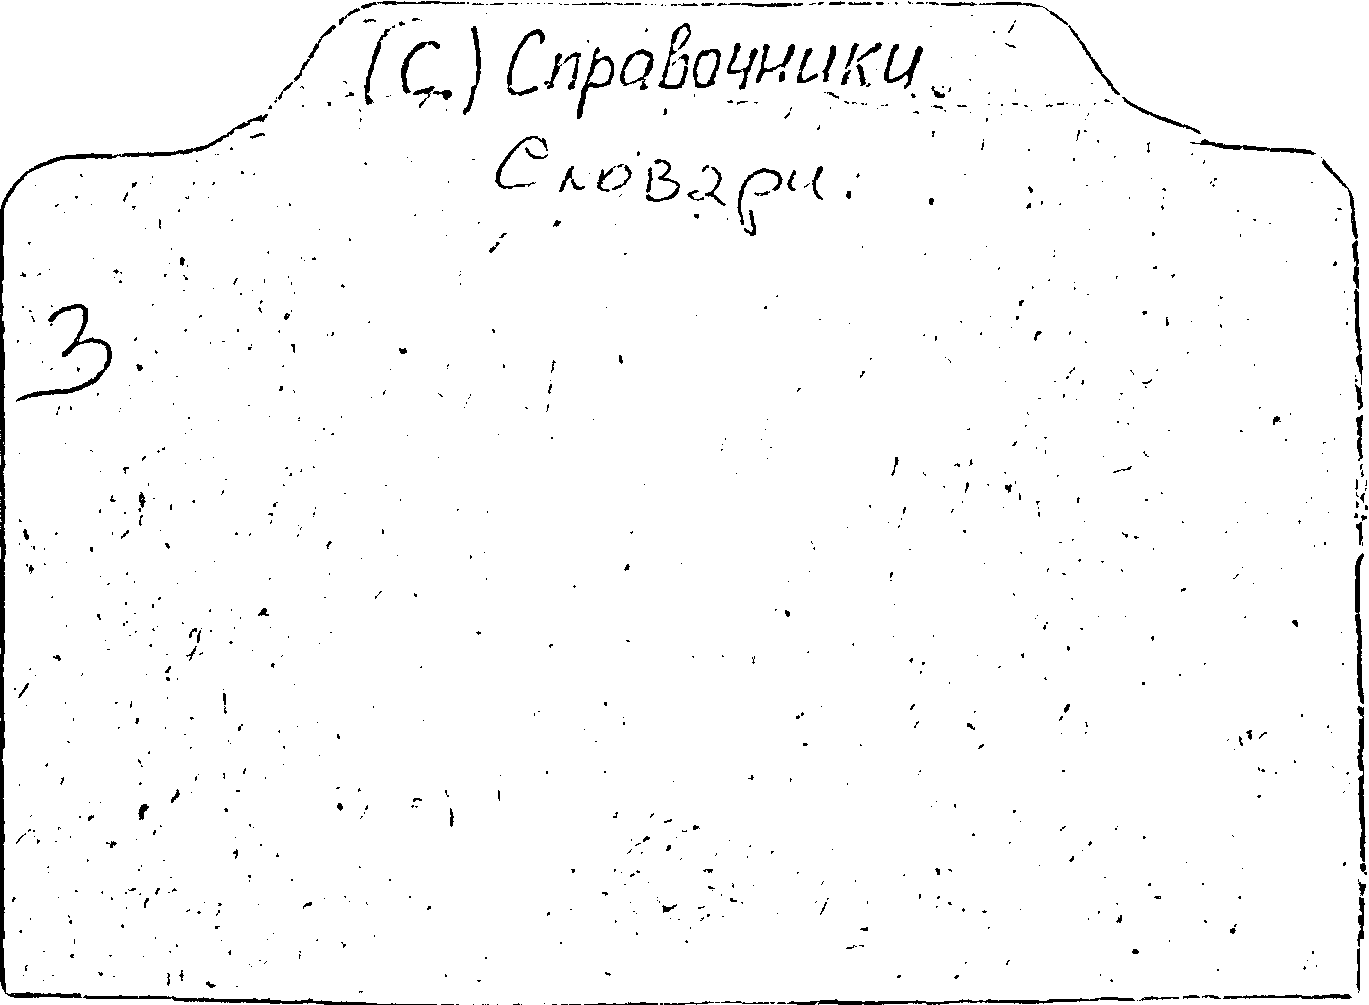 (С.) Справочники.
Словари.
3